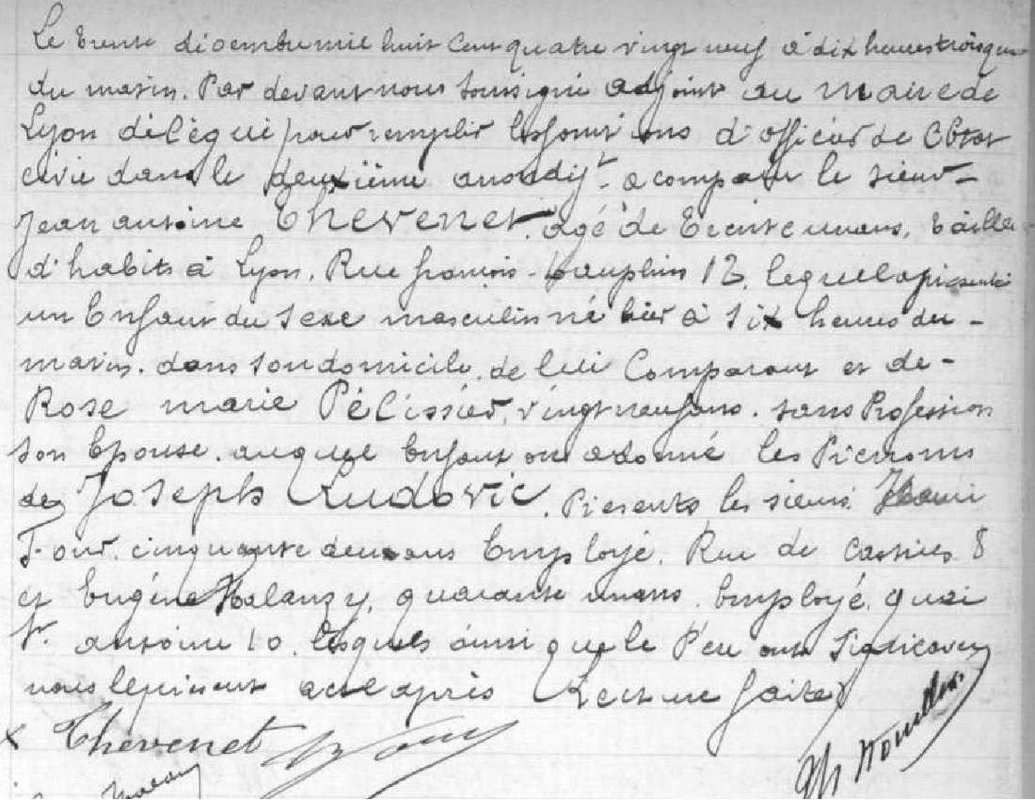 Le trente décembre mil huit cent quatre vingt neuf à dix heures trois quart
du matin. Par devant nous soussigné adjoint au Maire de
Lyon délégué pour remplir les fonctions d'officier de l'Etat
civil dans le deuxième arrondit. a comparu le sieur
Jean antoine Thevenet, âgé de trente un ans, taille
d'habits à Lyon, Rue françois-dauphin 12, lequel a présenté
un Enfant du Sexe masculin né hier à six heures du
matin. dans son domicile. de lui Comparant et de
Rose marie Pélissier, vingt neuf ans. sans Profession
son Epouse. auquel Enfant on a donné les Prénoms
de Joseph Ludovic. Présents les sieurs
cinquante deux ans Employé. Rue de Castries 8
et Eugène Malanzy, quarante un ans. Employé. quai
St. antoine 10. lesquels ainsi que le Père ont Signé avec
nous le présent acte après Lecture faite
Thévenet